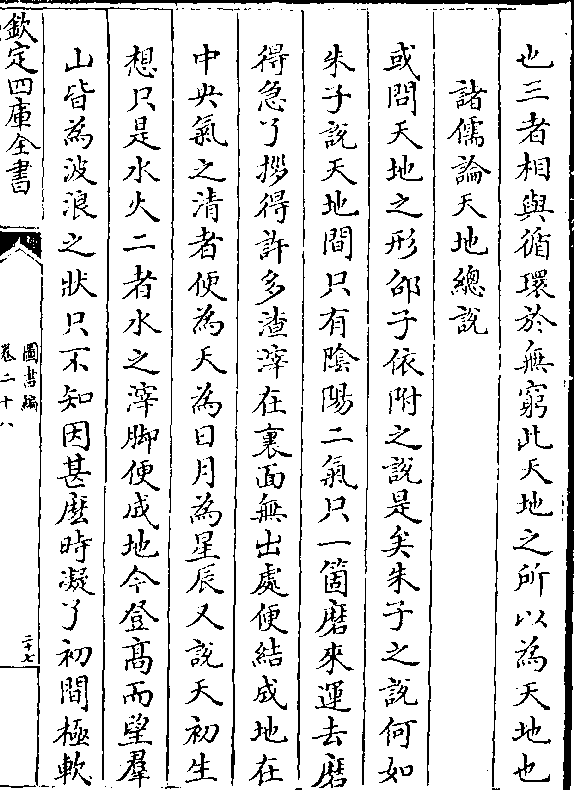 也三者相與循環於無窮此天地之所以為天地也
諸儒論天地總說
或問天地之形邵子依附之說是矣朱子之說何如
朱子說天地間只有陰陽二氣只一箇磨來運去磨
得急了拶得許多渣滓在裏面無出處便結成地在
中央氣之清者便為天為日月為星辰又說天初生
想只是水火二者水之滓脚便成地今登髙而望羣
山皆為波浪之狀只不知因甚麽時凝了初間極軟
欽定四庫全書
圖書編
卷二十八
二十七